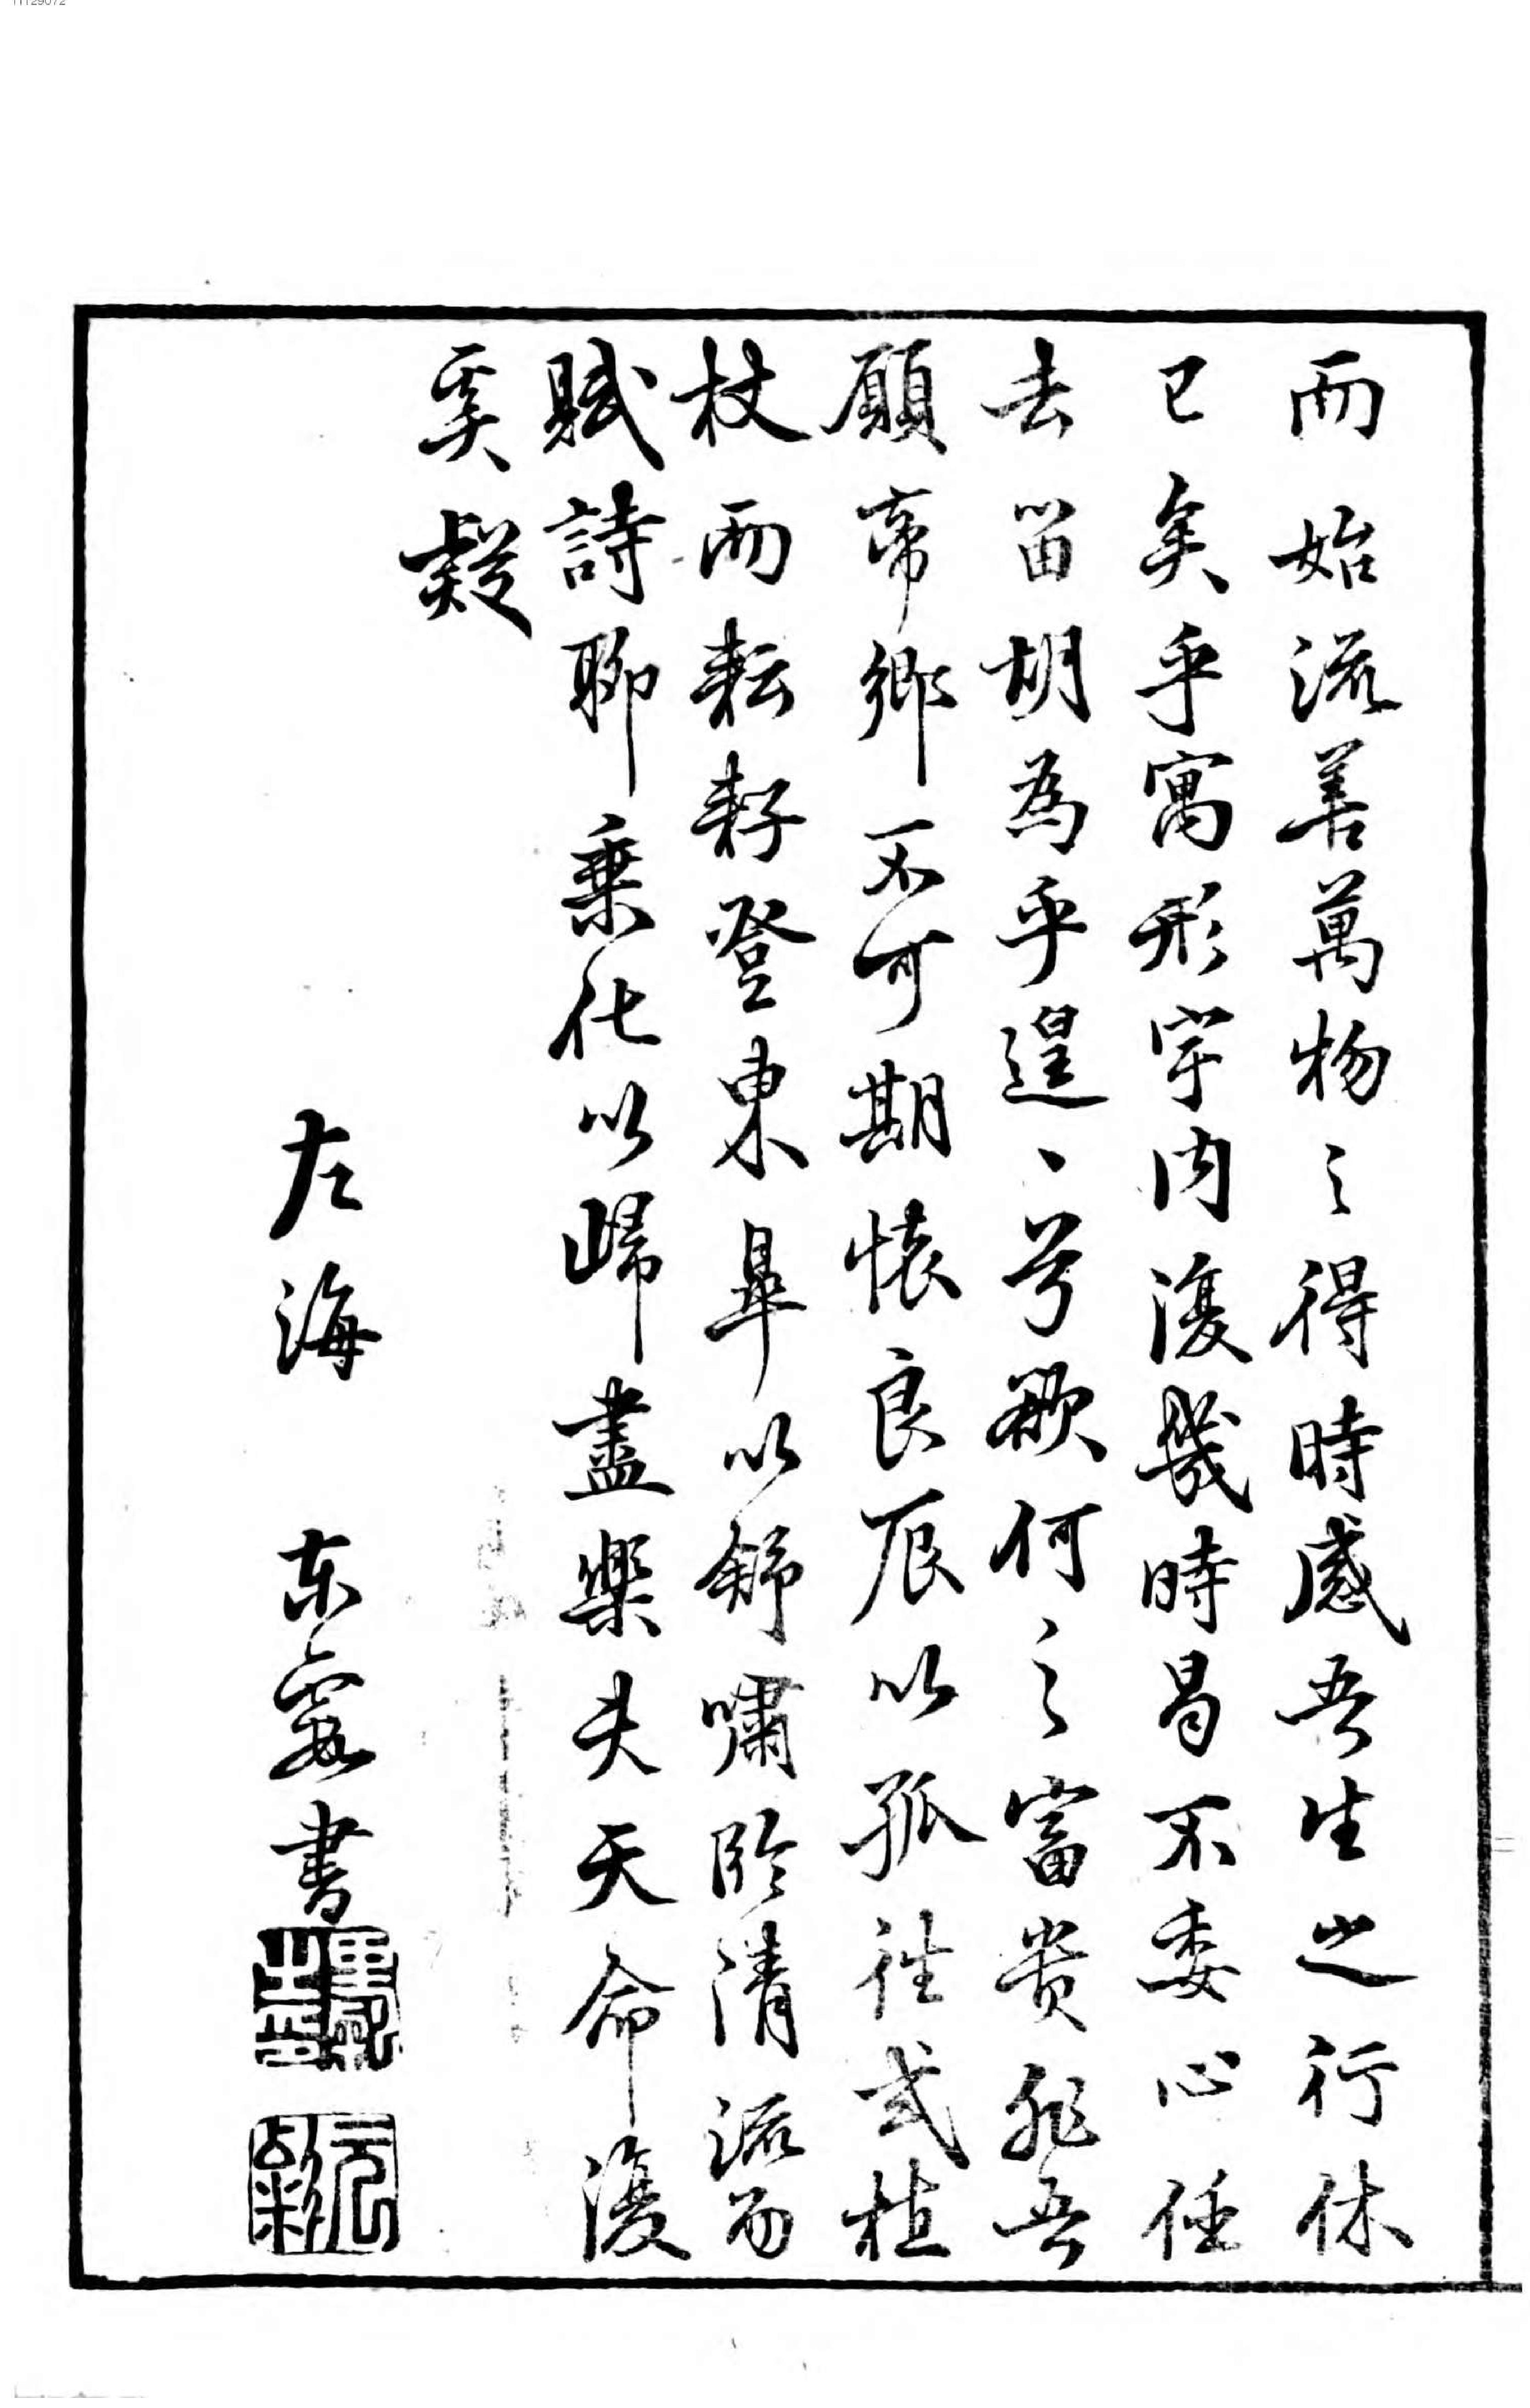 11129072
而始流善萬物之得時感吾生之行休
已矣乎寓形宇内復幾時曷不委心任
去留胡為乎遑〻兮欲何之富貴非吾
願帝鄉不可期懷良辰以孤往或植
杖而耘耔登東皋以舒嘯臨清流而
賦詩聊乘化以歸盡樂夫天命復
奚疑
左海 東 書